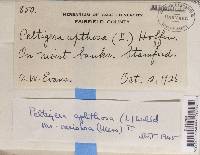 800.
HERBARIUM OF
FAIRFIELD COUNTY
Peltigera aphthosa (L.) Hoffm.
On moist banks. Stamford.
A.W. Evans. Oct. 2, 1925
Peltigera aphthosa (L.) Willd
var. variolosa (Mass)